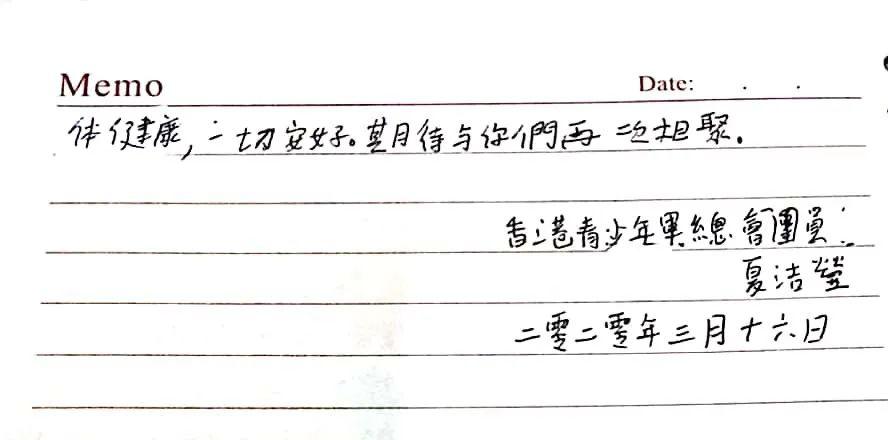 Memo Date: . .
体健康,一切安好。期待与你們再一次相聚.
香港青少年軍總會團員:
夏洁瑩
二零二零年三月十六日